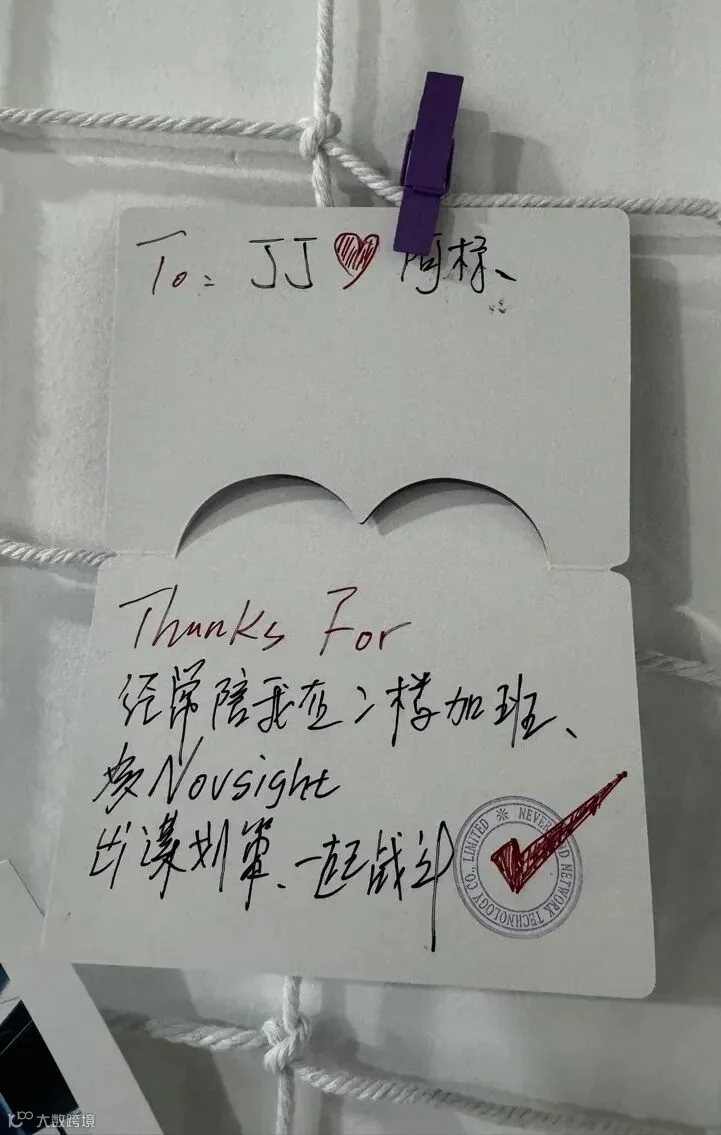 To: JJ 阿标、
Thanks For
经常陪我在二楼加班、
为Novsight
出谋划策、一起战斗
NEVERLAND NETWORK TECHNOLOGY CO., LIMITED
大数跨境